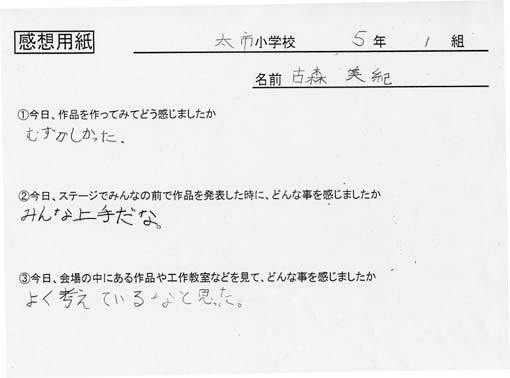 感想用紙
太市小学校 5年 1組
名前 古森 美紀
①今日、作品を作ってみてどう感じましたか
むずかしかった。
②今日、ステージでみんなの前で作品を発表した時に、どんな事を感じましたか
みんな上手だな。
③今日、会場の中にある作品や工作教室などを見て、どんな事を感じましたか
よく考えているなと思った。